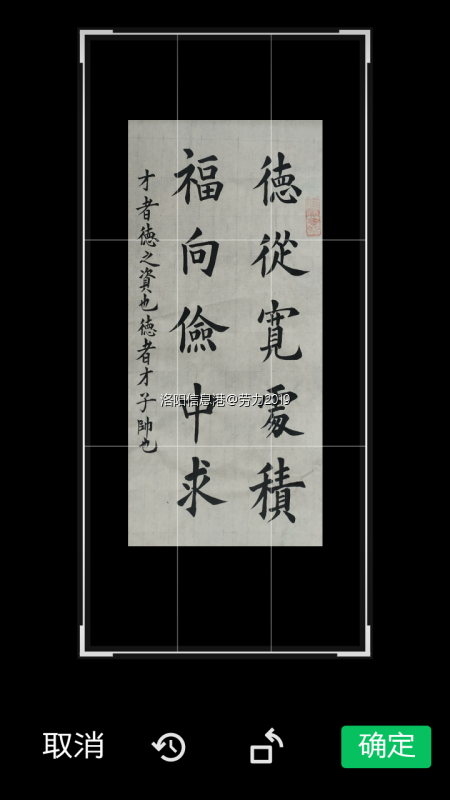 德從寬處積
福向儉中求
才者德之資也德者才子帥也
洛阳信息港@劳力2019
取消
确定